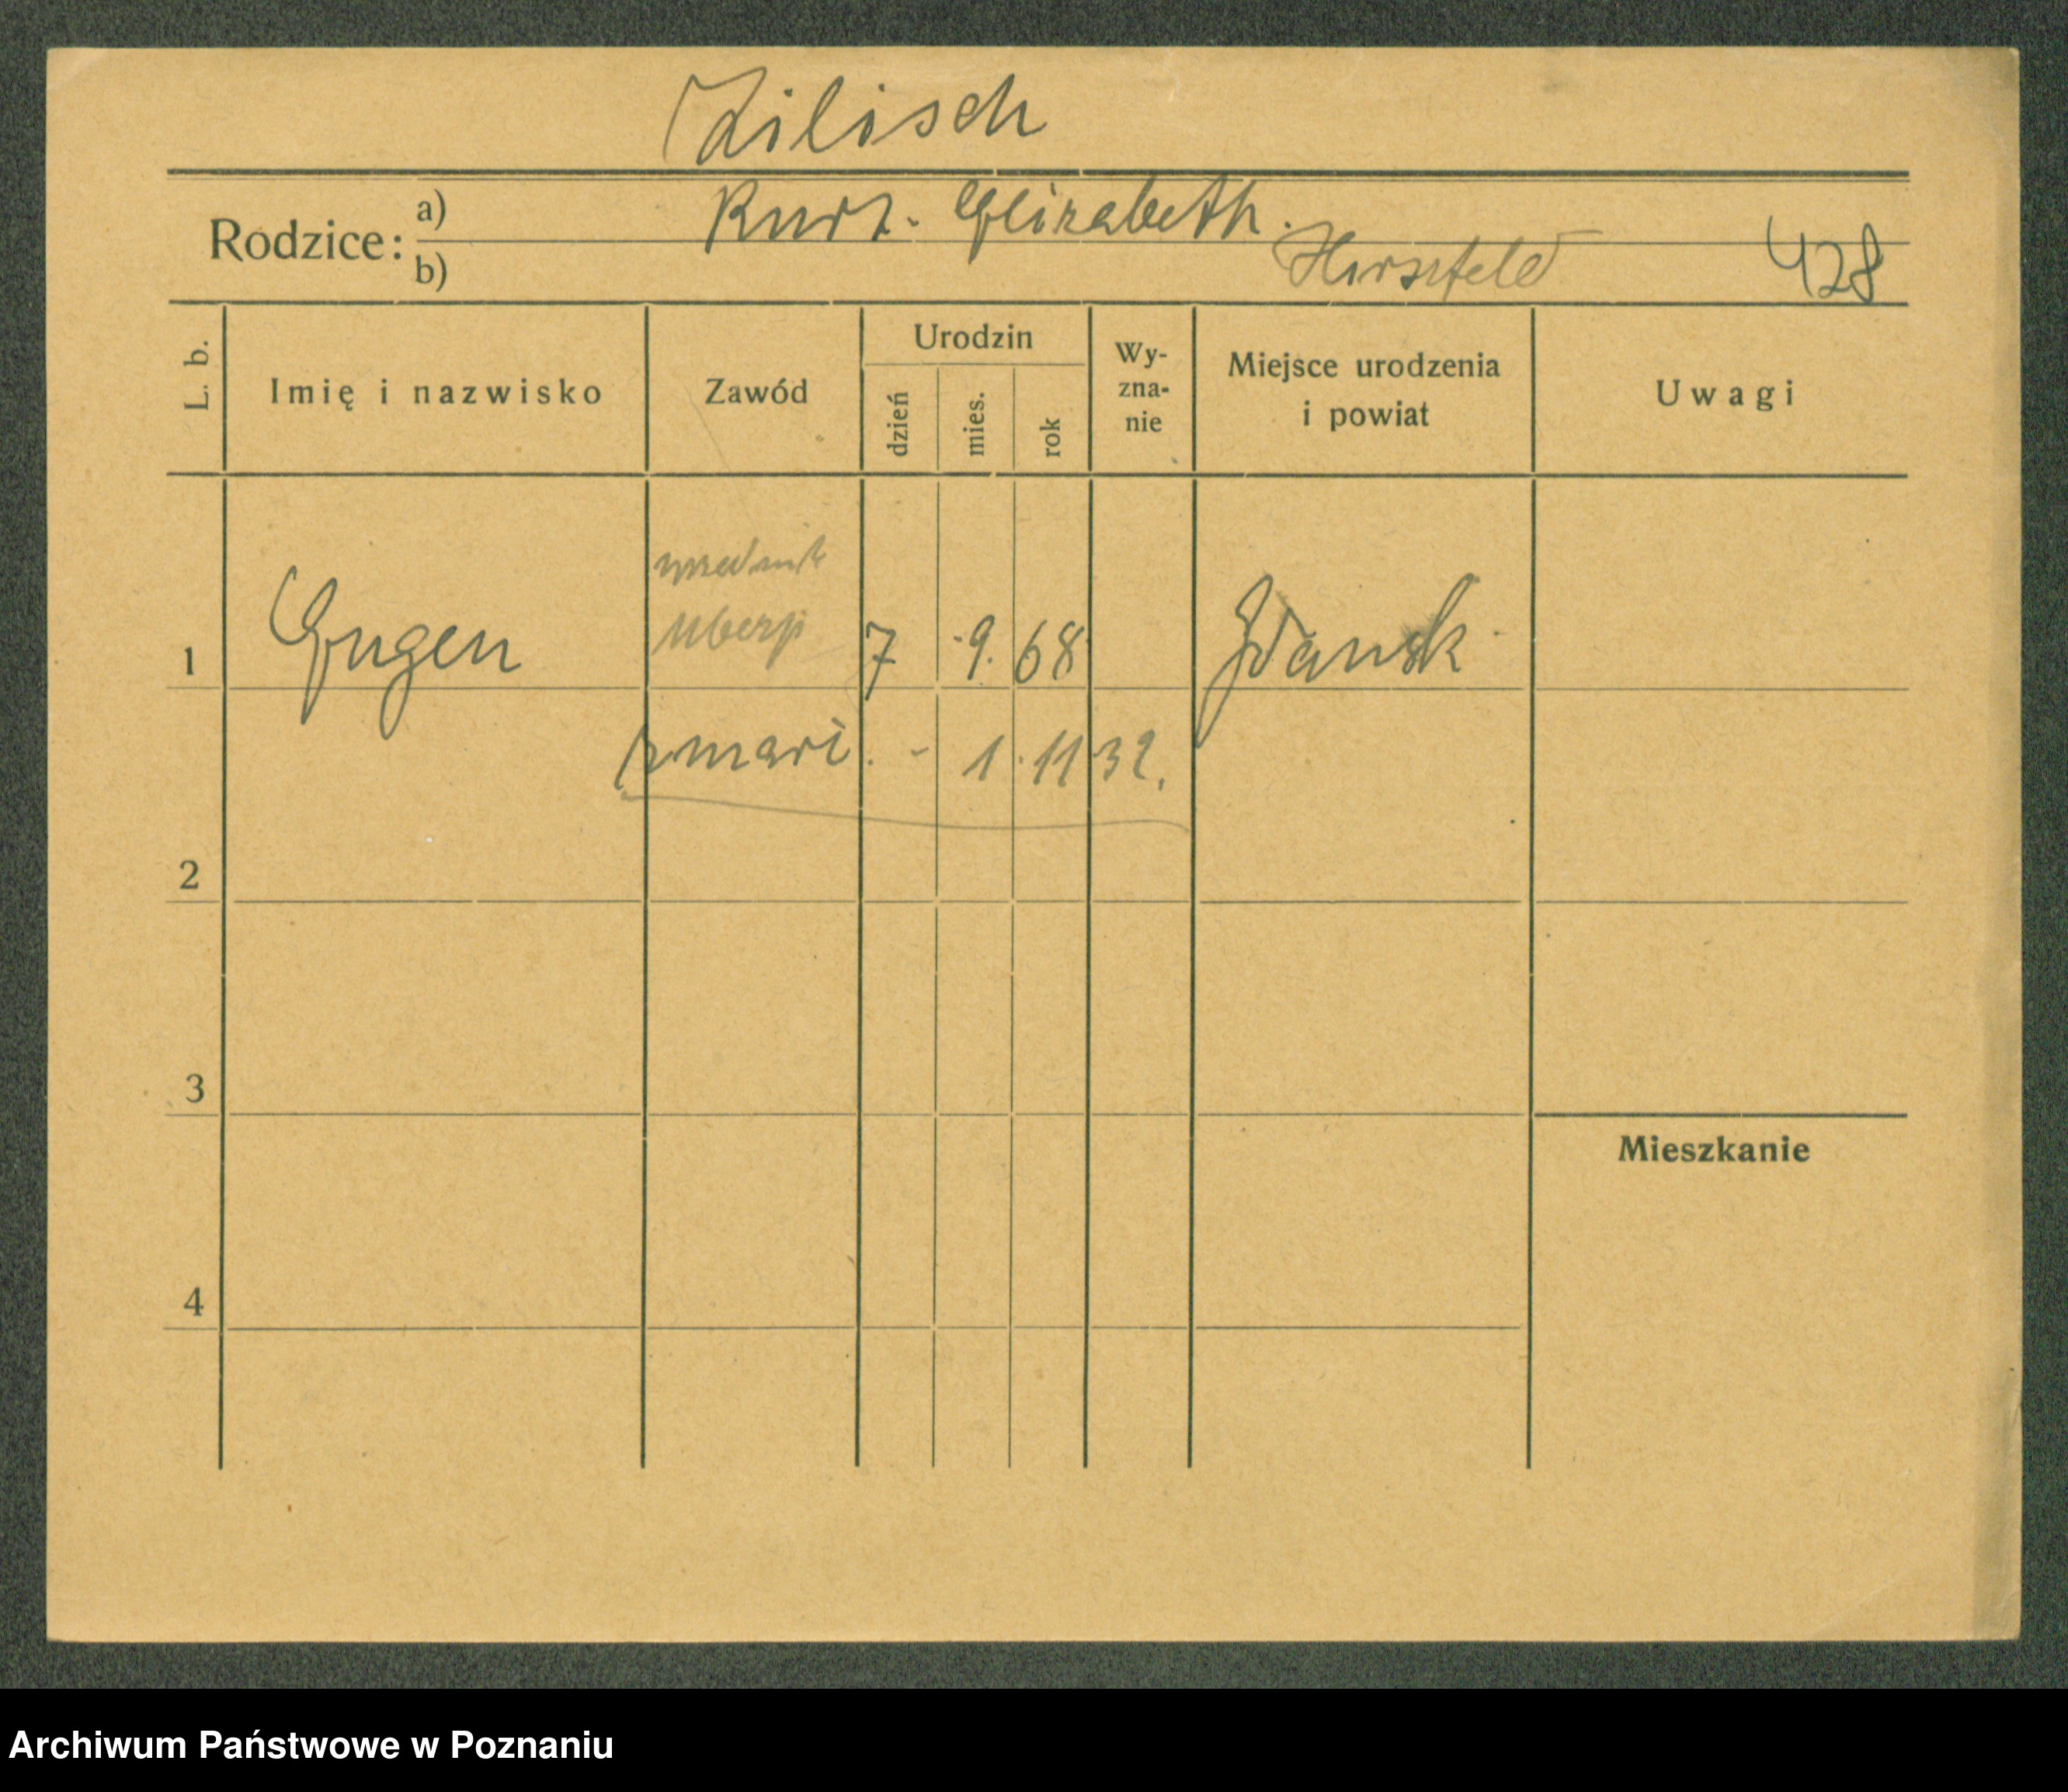 Zilisch
Rodzice: a) Kurt. Elizabeth.
b) Hirszfeld 428
L. b. Imię i nazwisko Zawód Urodzin dzień mies. rok Wyznanie Miejsce urodzenia i powiat Uwagi
urzednik
Ubezp
1 Eugen 7 9. 68 Gdansk
zmarł . - 1. 11 32.
2
3
Mieszkanie
4
Archiwum Państwowe w Poznaniu